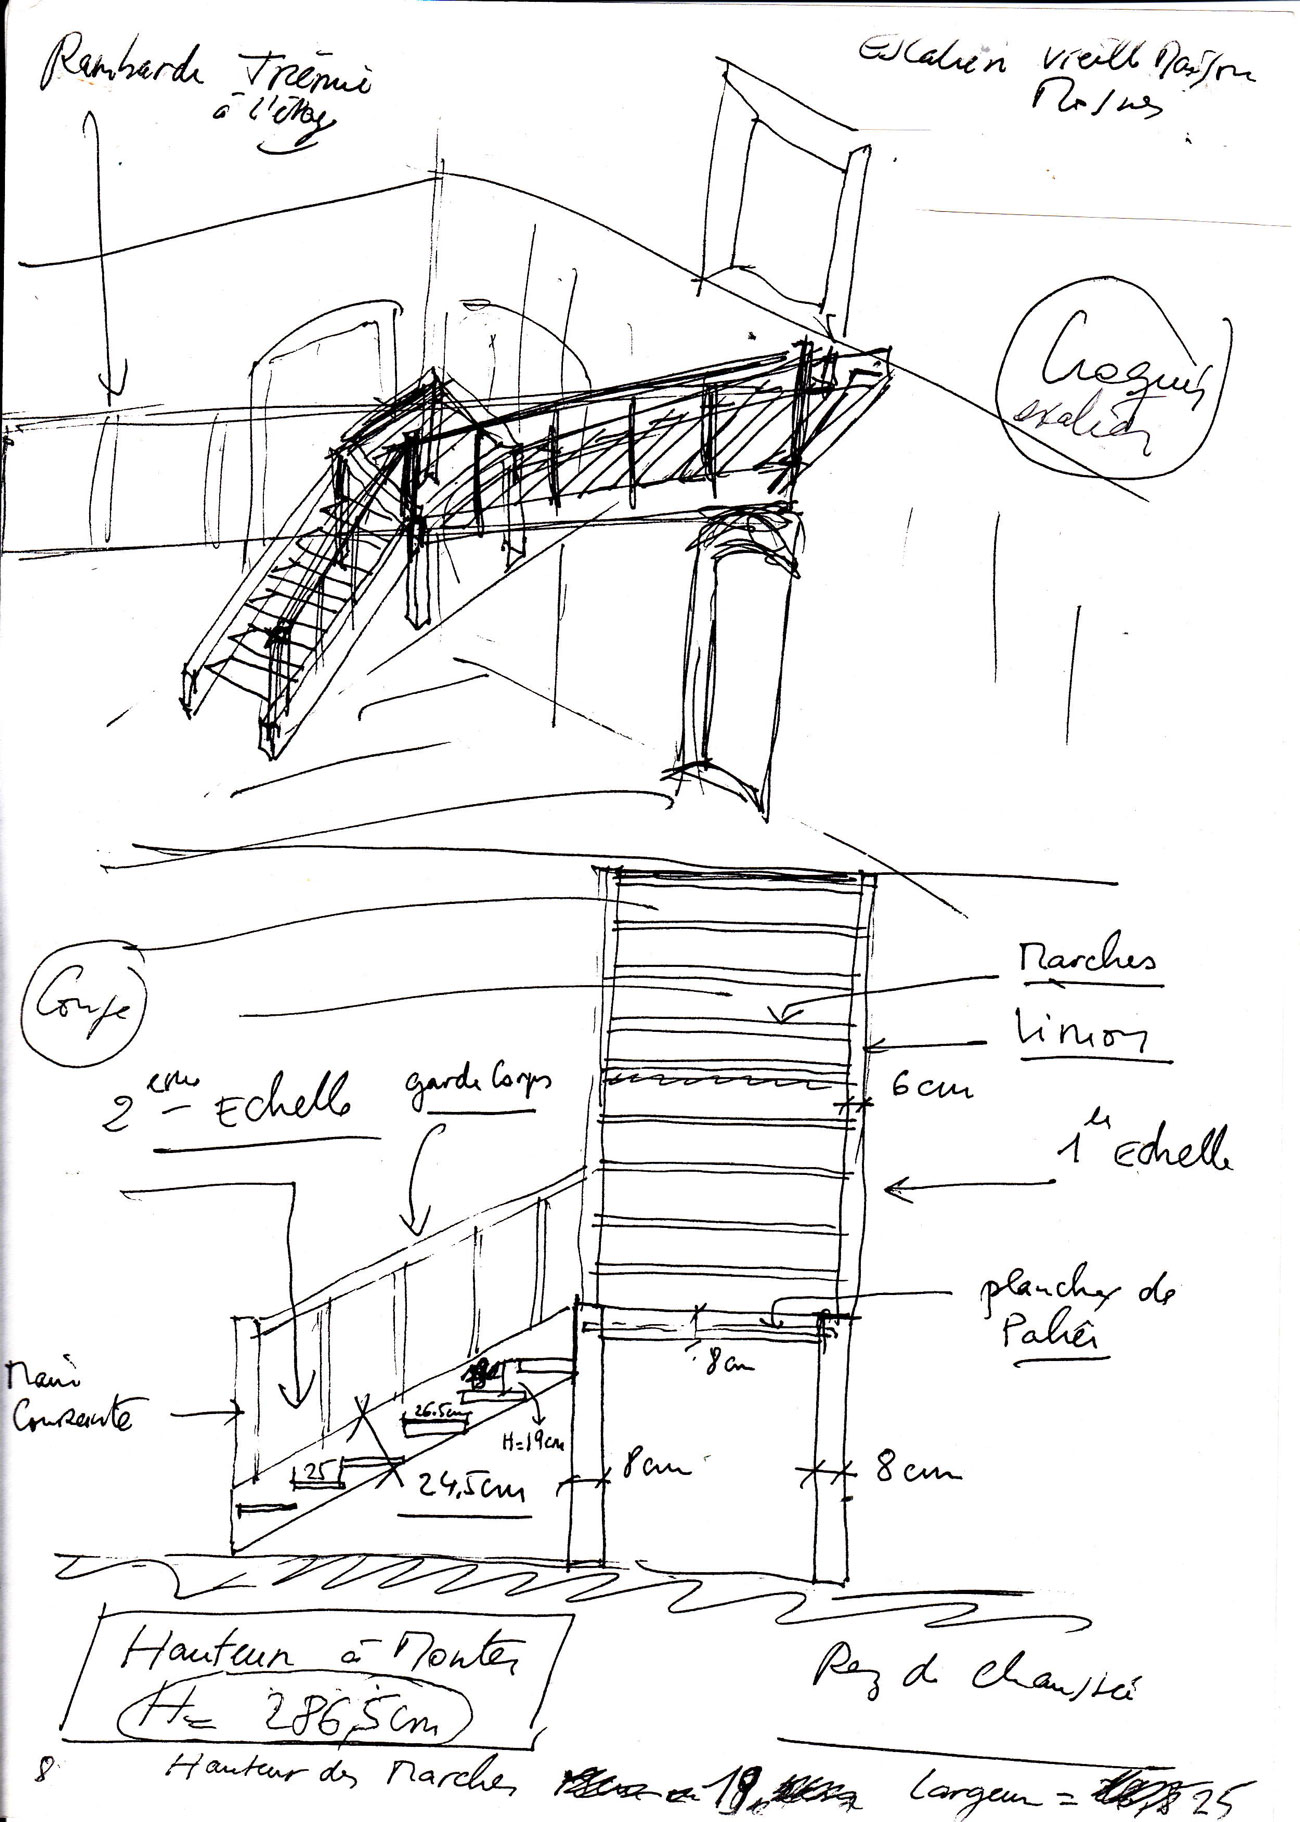 Rambarde Trémie
à l'étage
Escalier vieille Maison
Croquis
escalier
Coupe
Marches
Limon
6 cm
2eme Echelle
garde Corps
1er Echelle
plancher de
Palier
8 cm
Main
Courante
26.5cm
H=19cm
25
24,5cm
8cm
8cm
Hauteur à Monter
H= 286,5cm
Rez de chaussée
8
Hauteur des Marches
19,
Largeur =
25